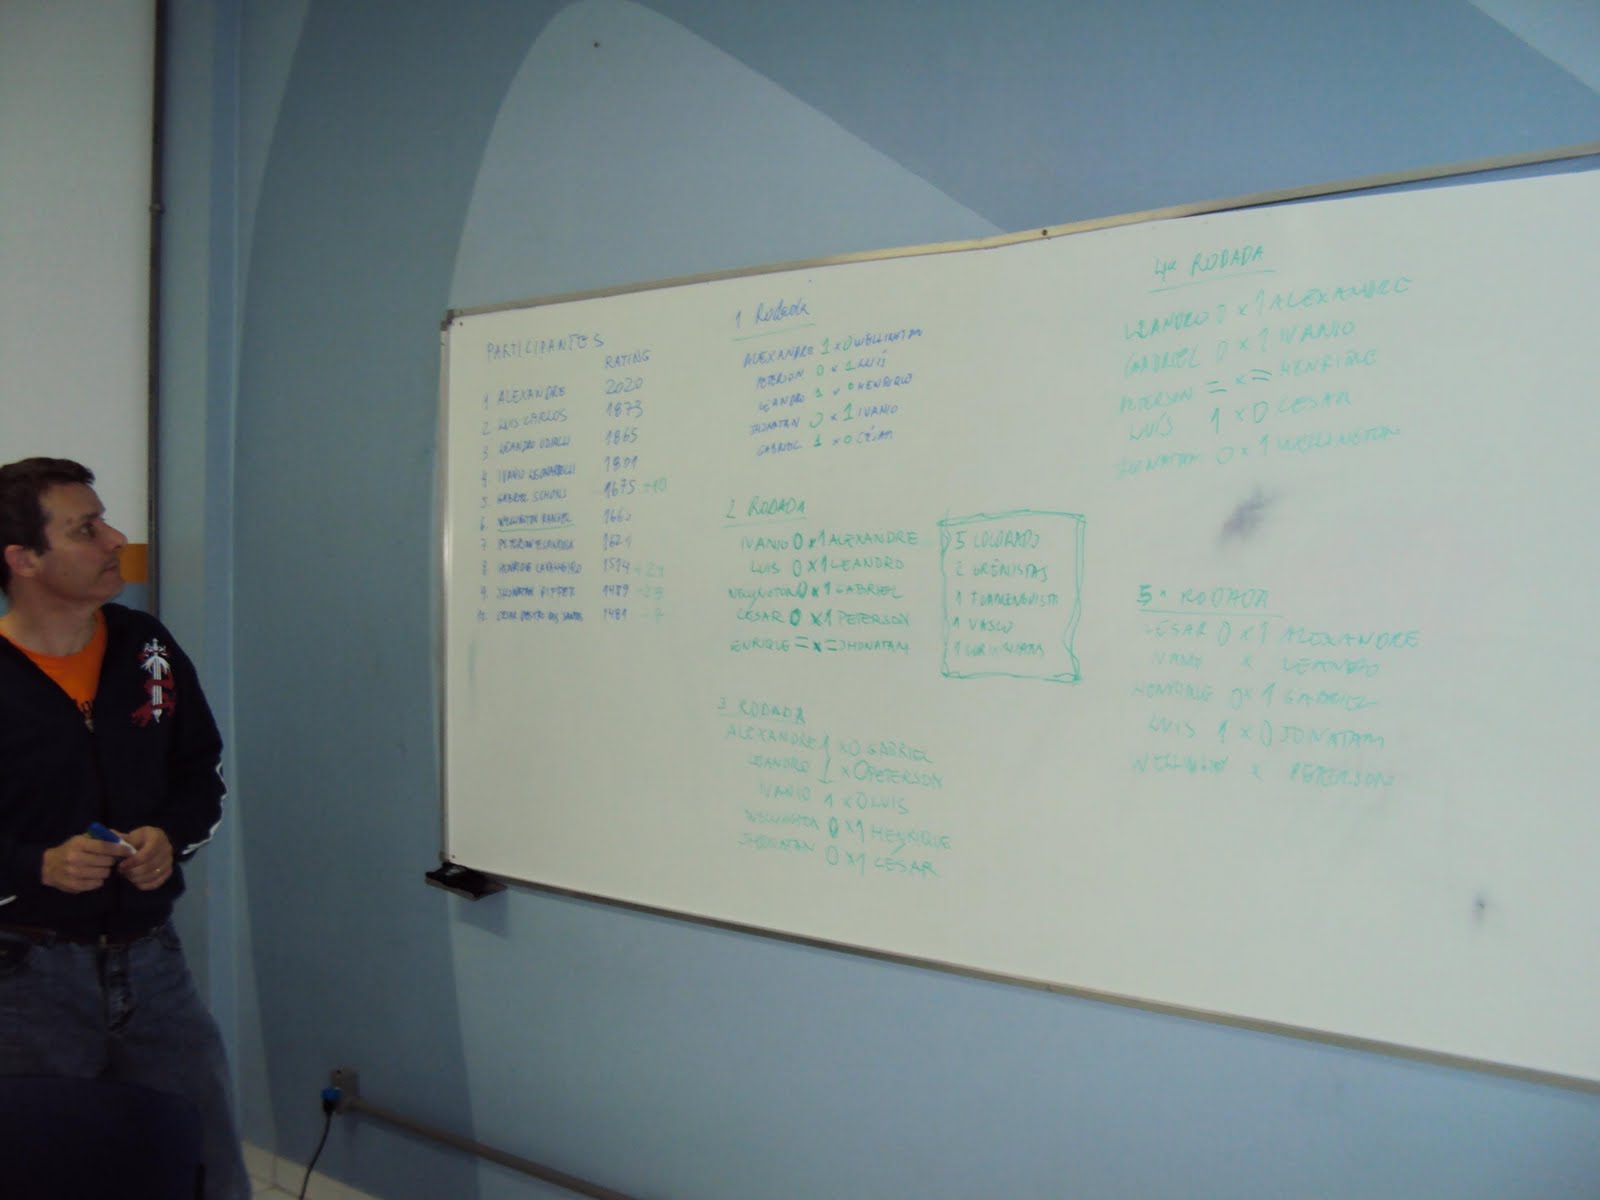 PARTICIPANTES
RATING
1 ALEXANDRE 2020
2 LUIS CARLOS 1873
3 LEANDRO 1865
4 IVANIO 1801
5 GABRIEL SCHONS 1675 -10
6. WELLINGTON RANGEL 1660
7 PETERSON 1621
8 HENRIQUE 1514
9. JHONATAN 1489
10. CESAR DOS SANTOS 1481
1 Rodada
ALEXANDRE 1 x 0 WELLINGTON
PETERSON 0 x 1 LUÍS
LEANDRO 1 x 0 HENRIQUE
JHONATAN 0 x 1 IVANIO
GABRIEL 1 x 0 CÉSAR
2 RODADA
IVANIO 0 x 1 ALEXANDRE
LUIS 0 x 1 LEANDRO
WELLINGTON 0 x 1 GABRIEL
CESAR 0 x 1 PETERSON
ENRIQUE = x = JHONATAM
5 COLORADO
2 GREMISTAS
1 FLAMENGUISTA
1 VASCO
1
3 RODADA
ALEXANDRE 1 x 0 GABRIEL
LEANDRO 1 x 0 PETERSON
IVANIO 1 x 0 LUIS
WELLINGTON 0 x 1 HENRIQUE
JHONATAN 0 x 1 CESAR
4ª RODADA
LEANDRO 0 x 1 ALEXANDRE
GABRIEL 0 x 1 IVANIO
PETERSON = x = HENRIQUE
LUÍS 1 x 0 CESAR
JHONATAN 0 x 1 WELLINGTON
5ª RODADA
CESAR 0 x 1 ALEXANDRE
IVANIO x LEANDRO
HENRIQUE 0 x 1 GABRIEL
LUIS 1 x 0 JONATAM
x PETERSON